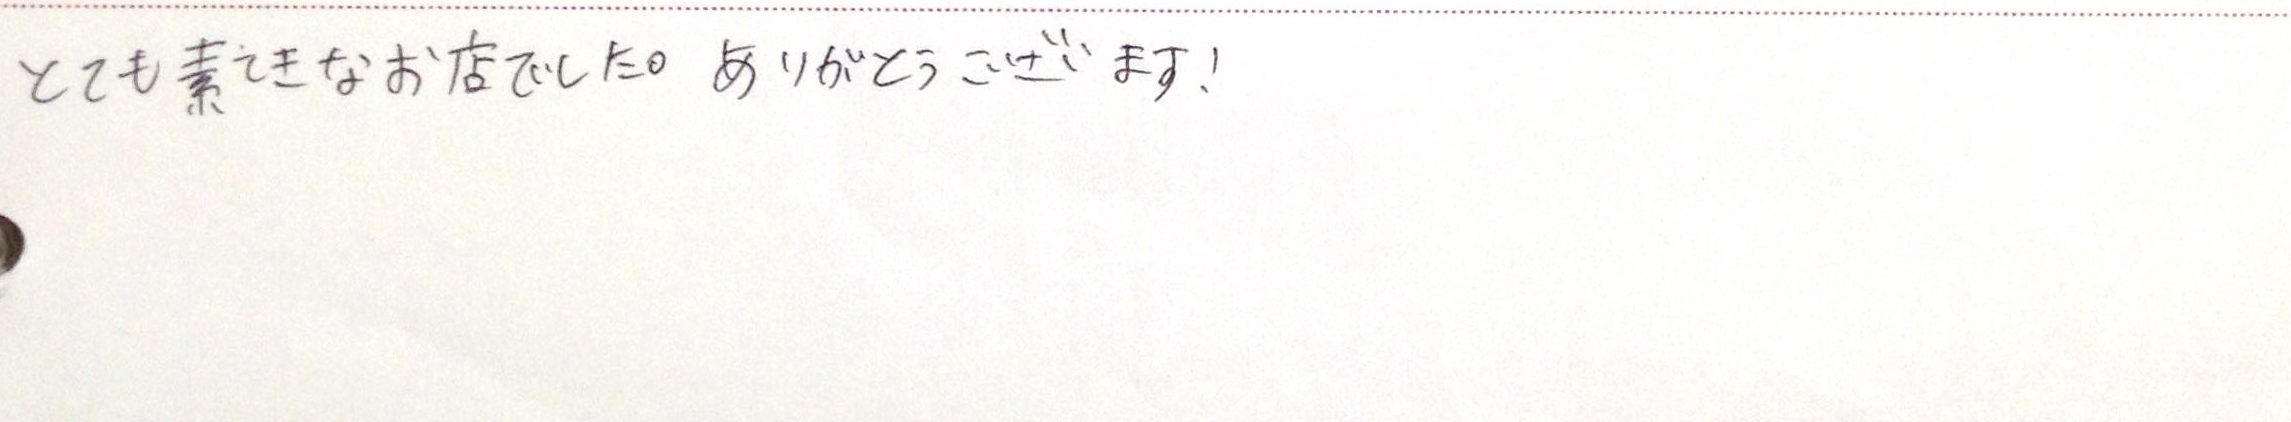 とても素てきなお店でした。ありがとうございます!